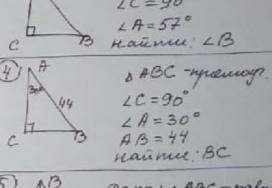 ∠C = 90°
∠A = 57°
найти: ∠B
C B
4 A
30°
44
C B
△ ABC - прямоуг.
∠C = 90°
∠A = 30°
AB = 44
найти: BC
B